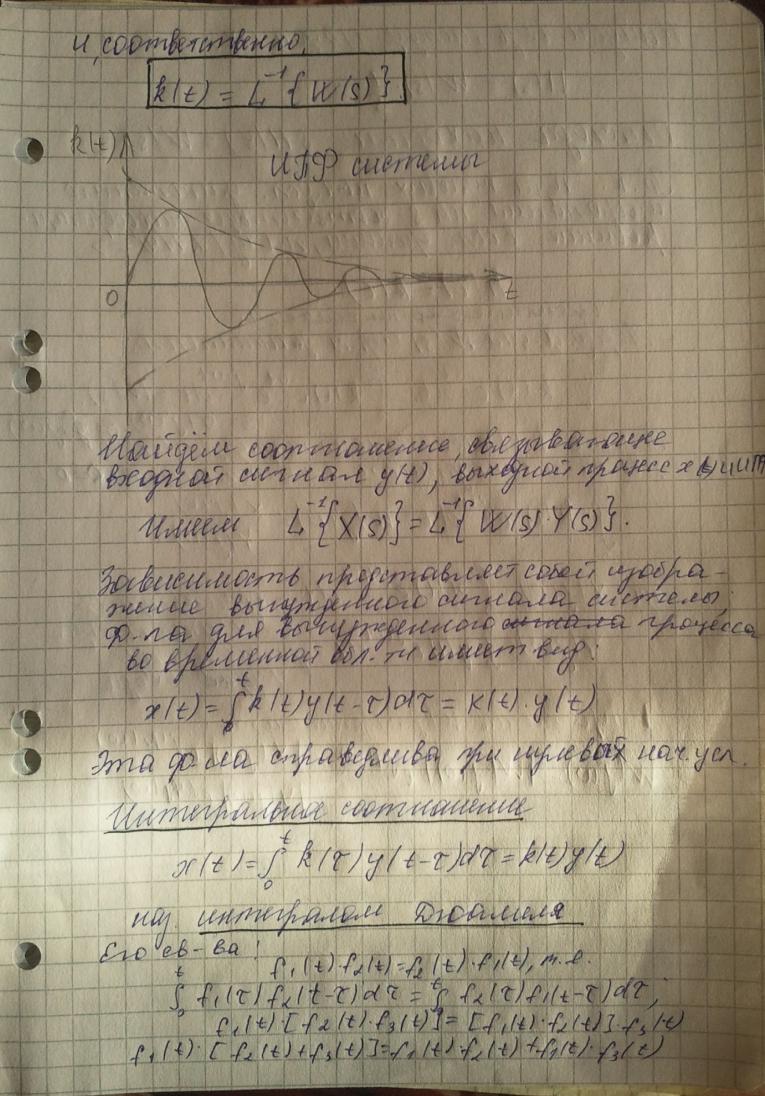 и, соответственно,
k(t) = L⁻¹{W(s)}
k(t)
ИПФ системы
0
t
Найдём соотношение, связывающее
входной сигнал y(t), выходной процесс x(t) и ИПФ
Имеем L⁻¹{X(s)} = L⁻¹{W(s)·Y(s)}.
Зависимость представляет собой изобра-
жение вынужденного сигнала системы;
ф-ла для вынужденного сигнала процесса
во временной обл-ти имеет вид:
x(t) = ∫₀ᵗ k(t)y(t-τ)dτ = K(t)·y(t)
Эта ф-ла справедлива при нулевых нач. усл.
Интегральное соотношение
x(t) = ∫₀ᵗ k(τ)y(t-τ)dτ = k(t)y(t)
наз. интегралом Дюамеля
Его св-ва:
f₁(t)·f₂(t) = f₂(t)·f₁(t), т.е.
∫₀ᵗ f₁(τ)f₂(t-τ)dτ = ∫₀ᵗ f₂(τ)f₁(t-τ)dτ;
f₁(t)·[f₂(t)·f₃(t)] = [f₁(t)·f₂(t)]·f₃(t)
f₁(t)·[f₂(t)+f₃(t)] = f₁(t)·f₂(t)+f₁(t)·f₃(t)